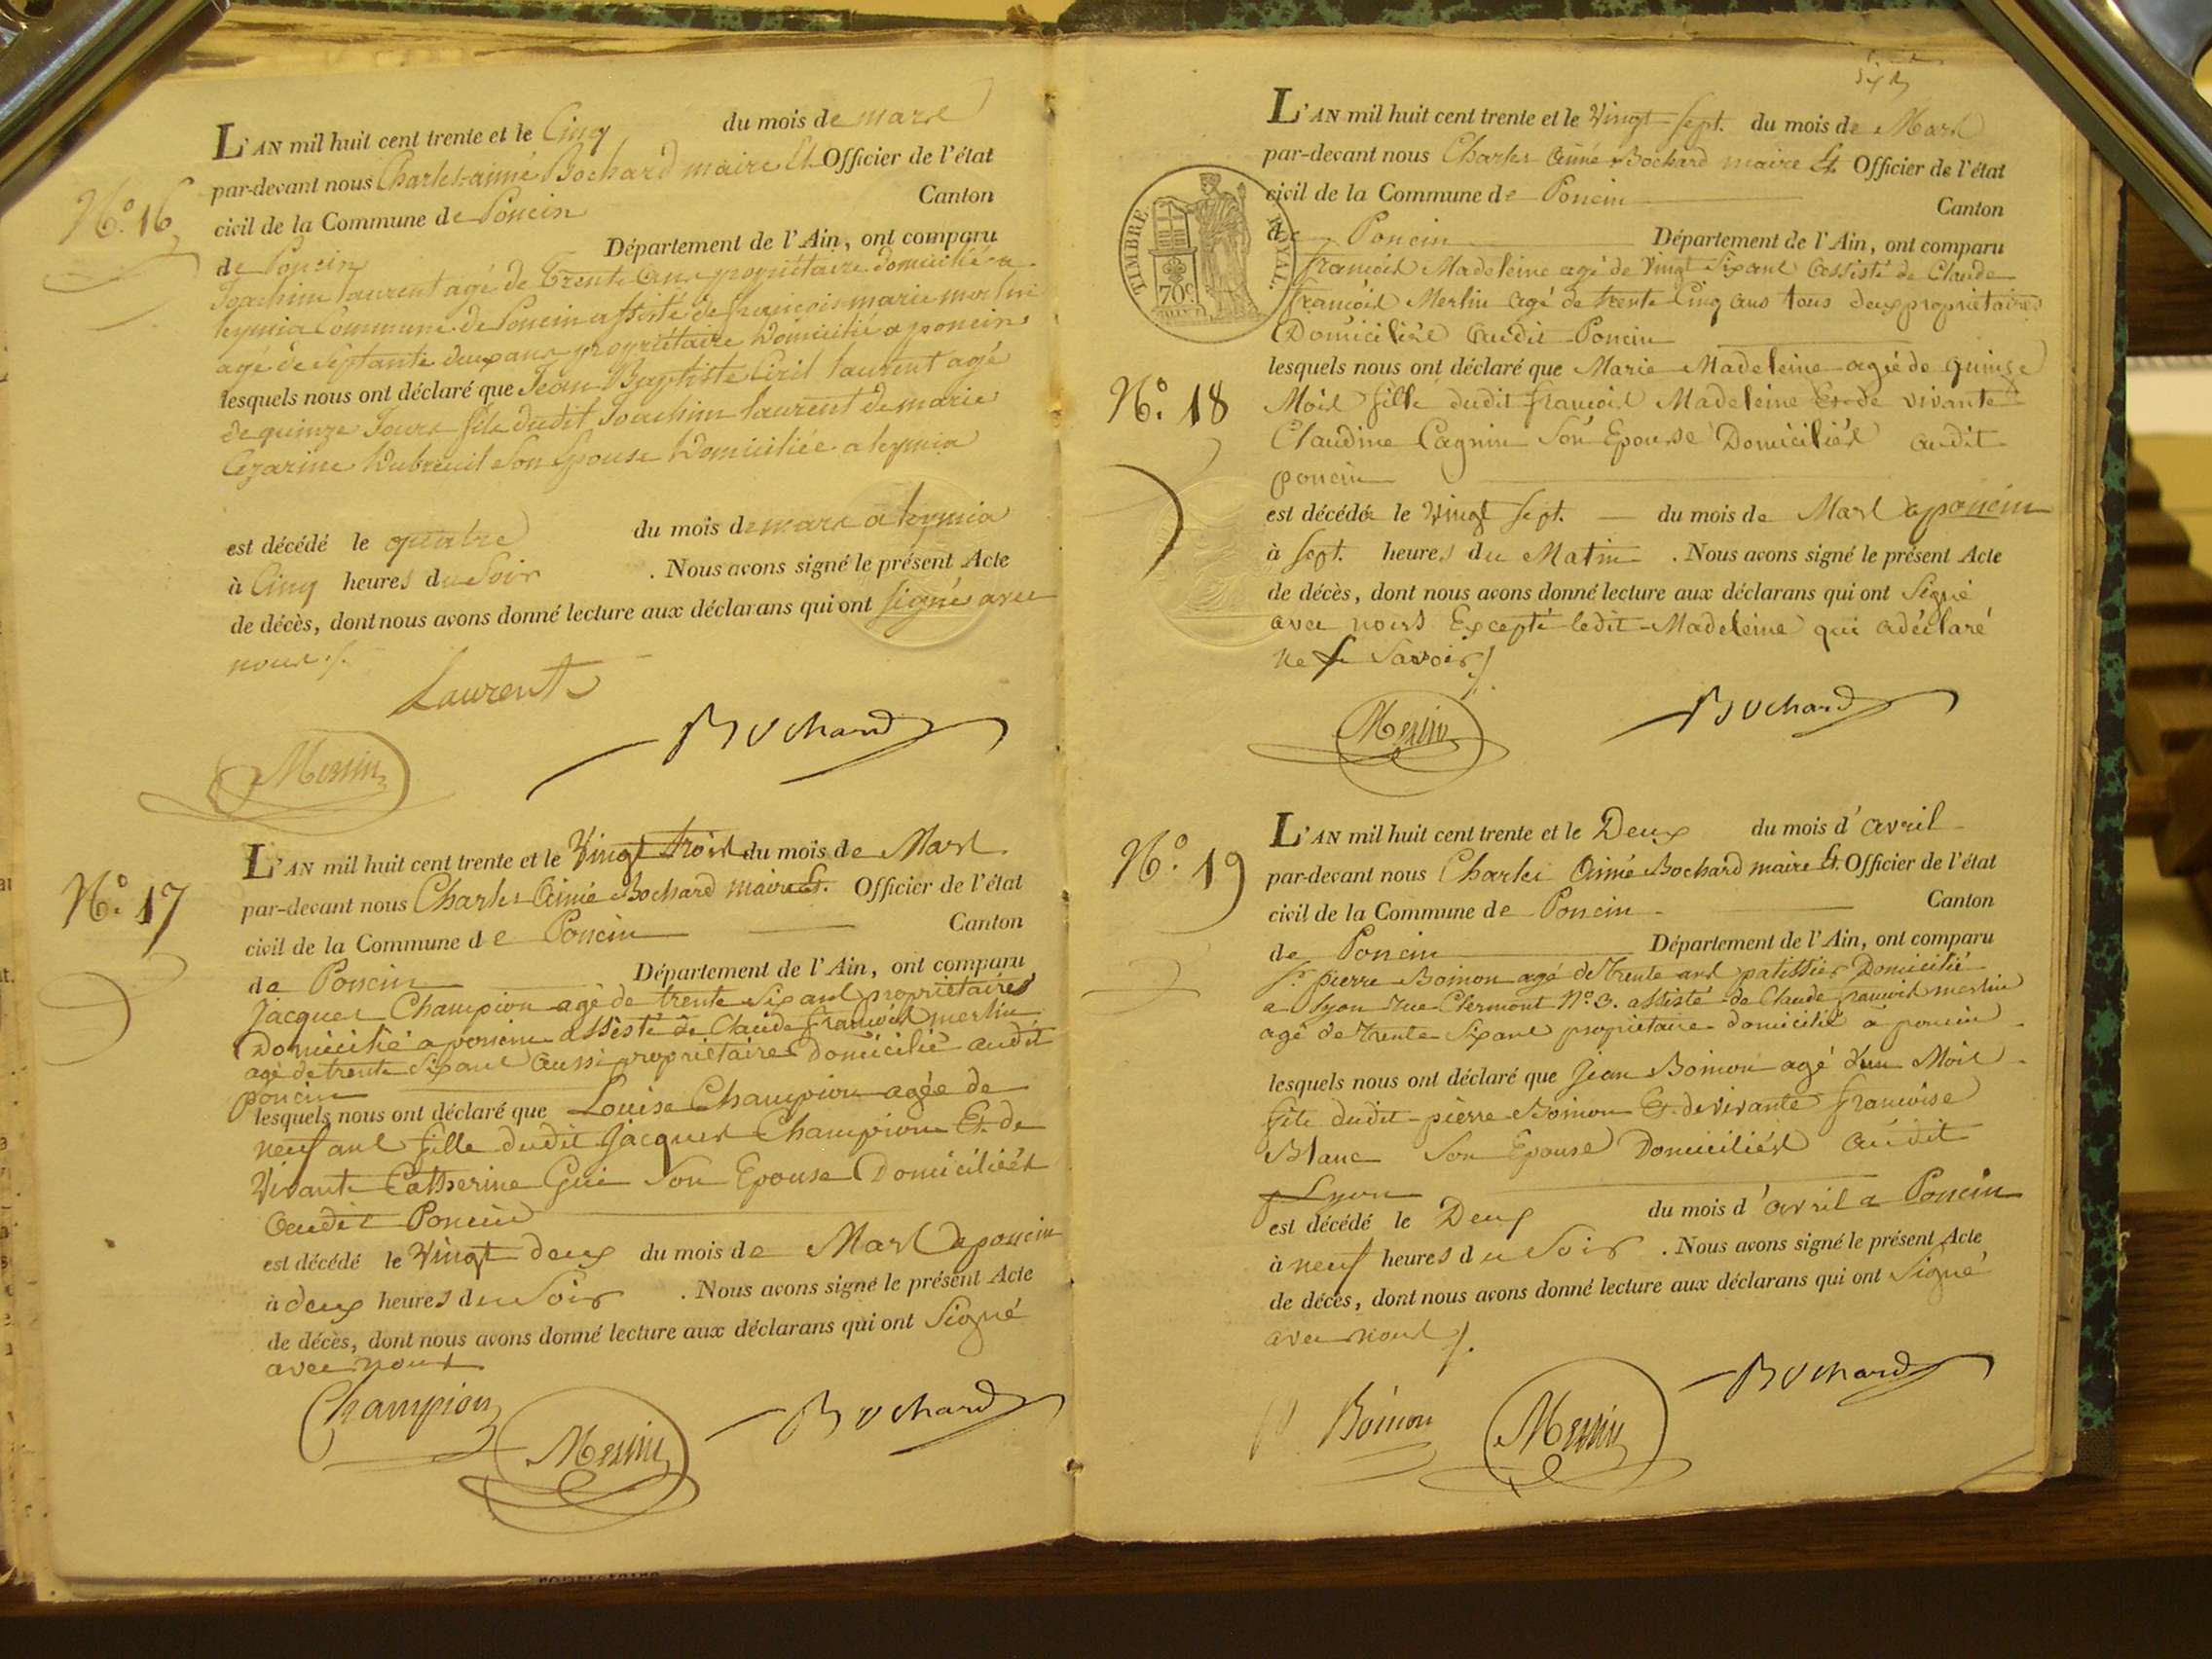 N.° 16
L'AN mil huit cent trente et le Cinq du mois de mars
par-devant nous Charles-aimé Bochard maire Et Officier de l'état
civil de la Commune de Poncin Canton
de Poncin Département de l'Ain, ont comparu
Joachim laurent agé de Trente ans propriétaire domicilié a
leymia Commune de Poncin assisté de françois marie merlin
agé de Septante deux ans propriétaire Domicilié a poncin
lesquels nous ont déclaré que Jean Baptiste Ciril laurent agé
de quinze Jours fils dudit Joachim laurent de marie
Cézarine Dubreuil Son Epouse Domiciliée a leymia
est décédé le quatre du mois de mars a leymia
à Cinq heures du Soir . Nous avons signé le présent Acte
de décès, dont nous avons donné lecture aux déclarans qui ont signés avec
nous ./.
Laurent
Bochard
Merlin
N.° 17
L'AN mil huit cent trente et le Vingt trois du mois de Mars
par-devant nous Charles Aimé Bochard maire Et Officier de l'état
civil de la Commune de Poncin Canton
de Poncin Département de l'Ain, ont comparu
Jacques Champion agé de trente Six ans propriétaire
Domicilié a poncin assisté de Claude françois merlin
agé de trente Six ans aussi propriétaire domicilié audit
poncin
lesquels nous ont déclaré que Louise Champion agée de
neuf ans fille dudit Jacques Champion Et de
Vivante Catherine Gui Son Epouse Domiciliés
audit Poncin
est décédé le Vingt deux du mois de Mars a poncin
à deux heures du Soir . Nous avons signé le présent Acte
de décès, dont nous avons donné lecture aux déclarans qui ont Signé
avec nous
Champion
Merlin
Bochard
L'AN mil huit cent trente et le Vingt Sept. du mois de Mars
par-devant nous Charles Aimé Bochard maire Et Officier de l'état
civil de la Commune de Poncin Canton
de Poncin Département de l'Ain, ont comparu
TIMBRE ROYAL.
70c.
françois Madeleine agé de Vingt Six ans assisté de Claude
françois Merlin agé de trente Cinq ans tous deux propriétaires
Domiciliés audit Poncin
N.° 18
lesquels nous ont déclaré que Marie Madeleine agée de quinze
Mois fille dudit françois Madeleine Et de vivante
Claudine Cagnin Son Epouse Domiciliés audit
poncin
est décédée le Vingt Sept. du mois de Mars a poncin
à Sept. heures du Matin . Nous avons signé le présent Acte
de décès, dont nous avons donné lecture aux déclarans qui ont Signé
avec nous Excepté ledit Madeleine qui a déclaré
ne le Savoir ./.
Merlin
Bochard
N.° 19
L'AN mil huit cent trente et le Deux du mois d'avril
par-devant nous Charles Aimé Bochard maire Et Officier de l'état
civil de la Commune de Poncin Canton
de Poncin Département de l'Ain, ont comparu
Sr. pierre Boinon agé de Trente ans patissier Domicilié
a Lyon Rue Clermont N.° 3. assisté de Claude françois merlin
agé de Trente Six ans propriétaire domicilié a poncin
lesquels nous ont déclaré que Jean Boinon agé d'un Mois
fils dudit pierre Boinon Et de vivante françoise
Blanc Son Epouse Domiciliés audit
Lyon
est décédé le Deux du mois d'avril a Poncin
à neuf heures du Soir . Nous avons signé le présent Acte
de décès, dont nous avons donné lecture aux déclarans qui ont Signé
avec nous ./.
P. Boinon
Merlin
Bochard